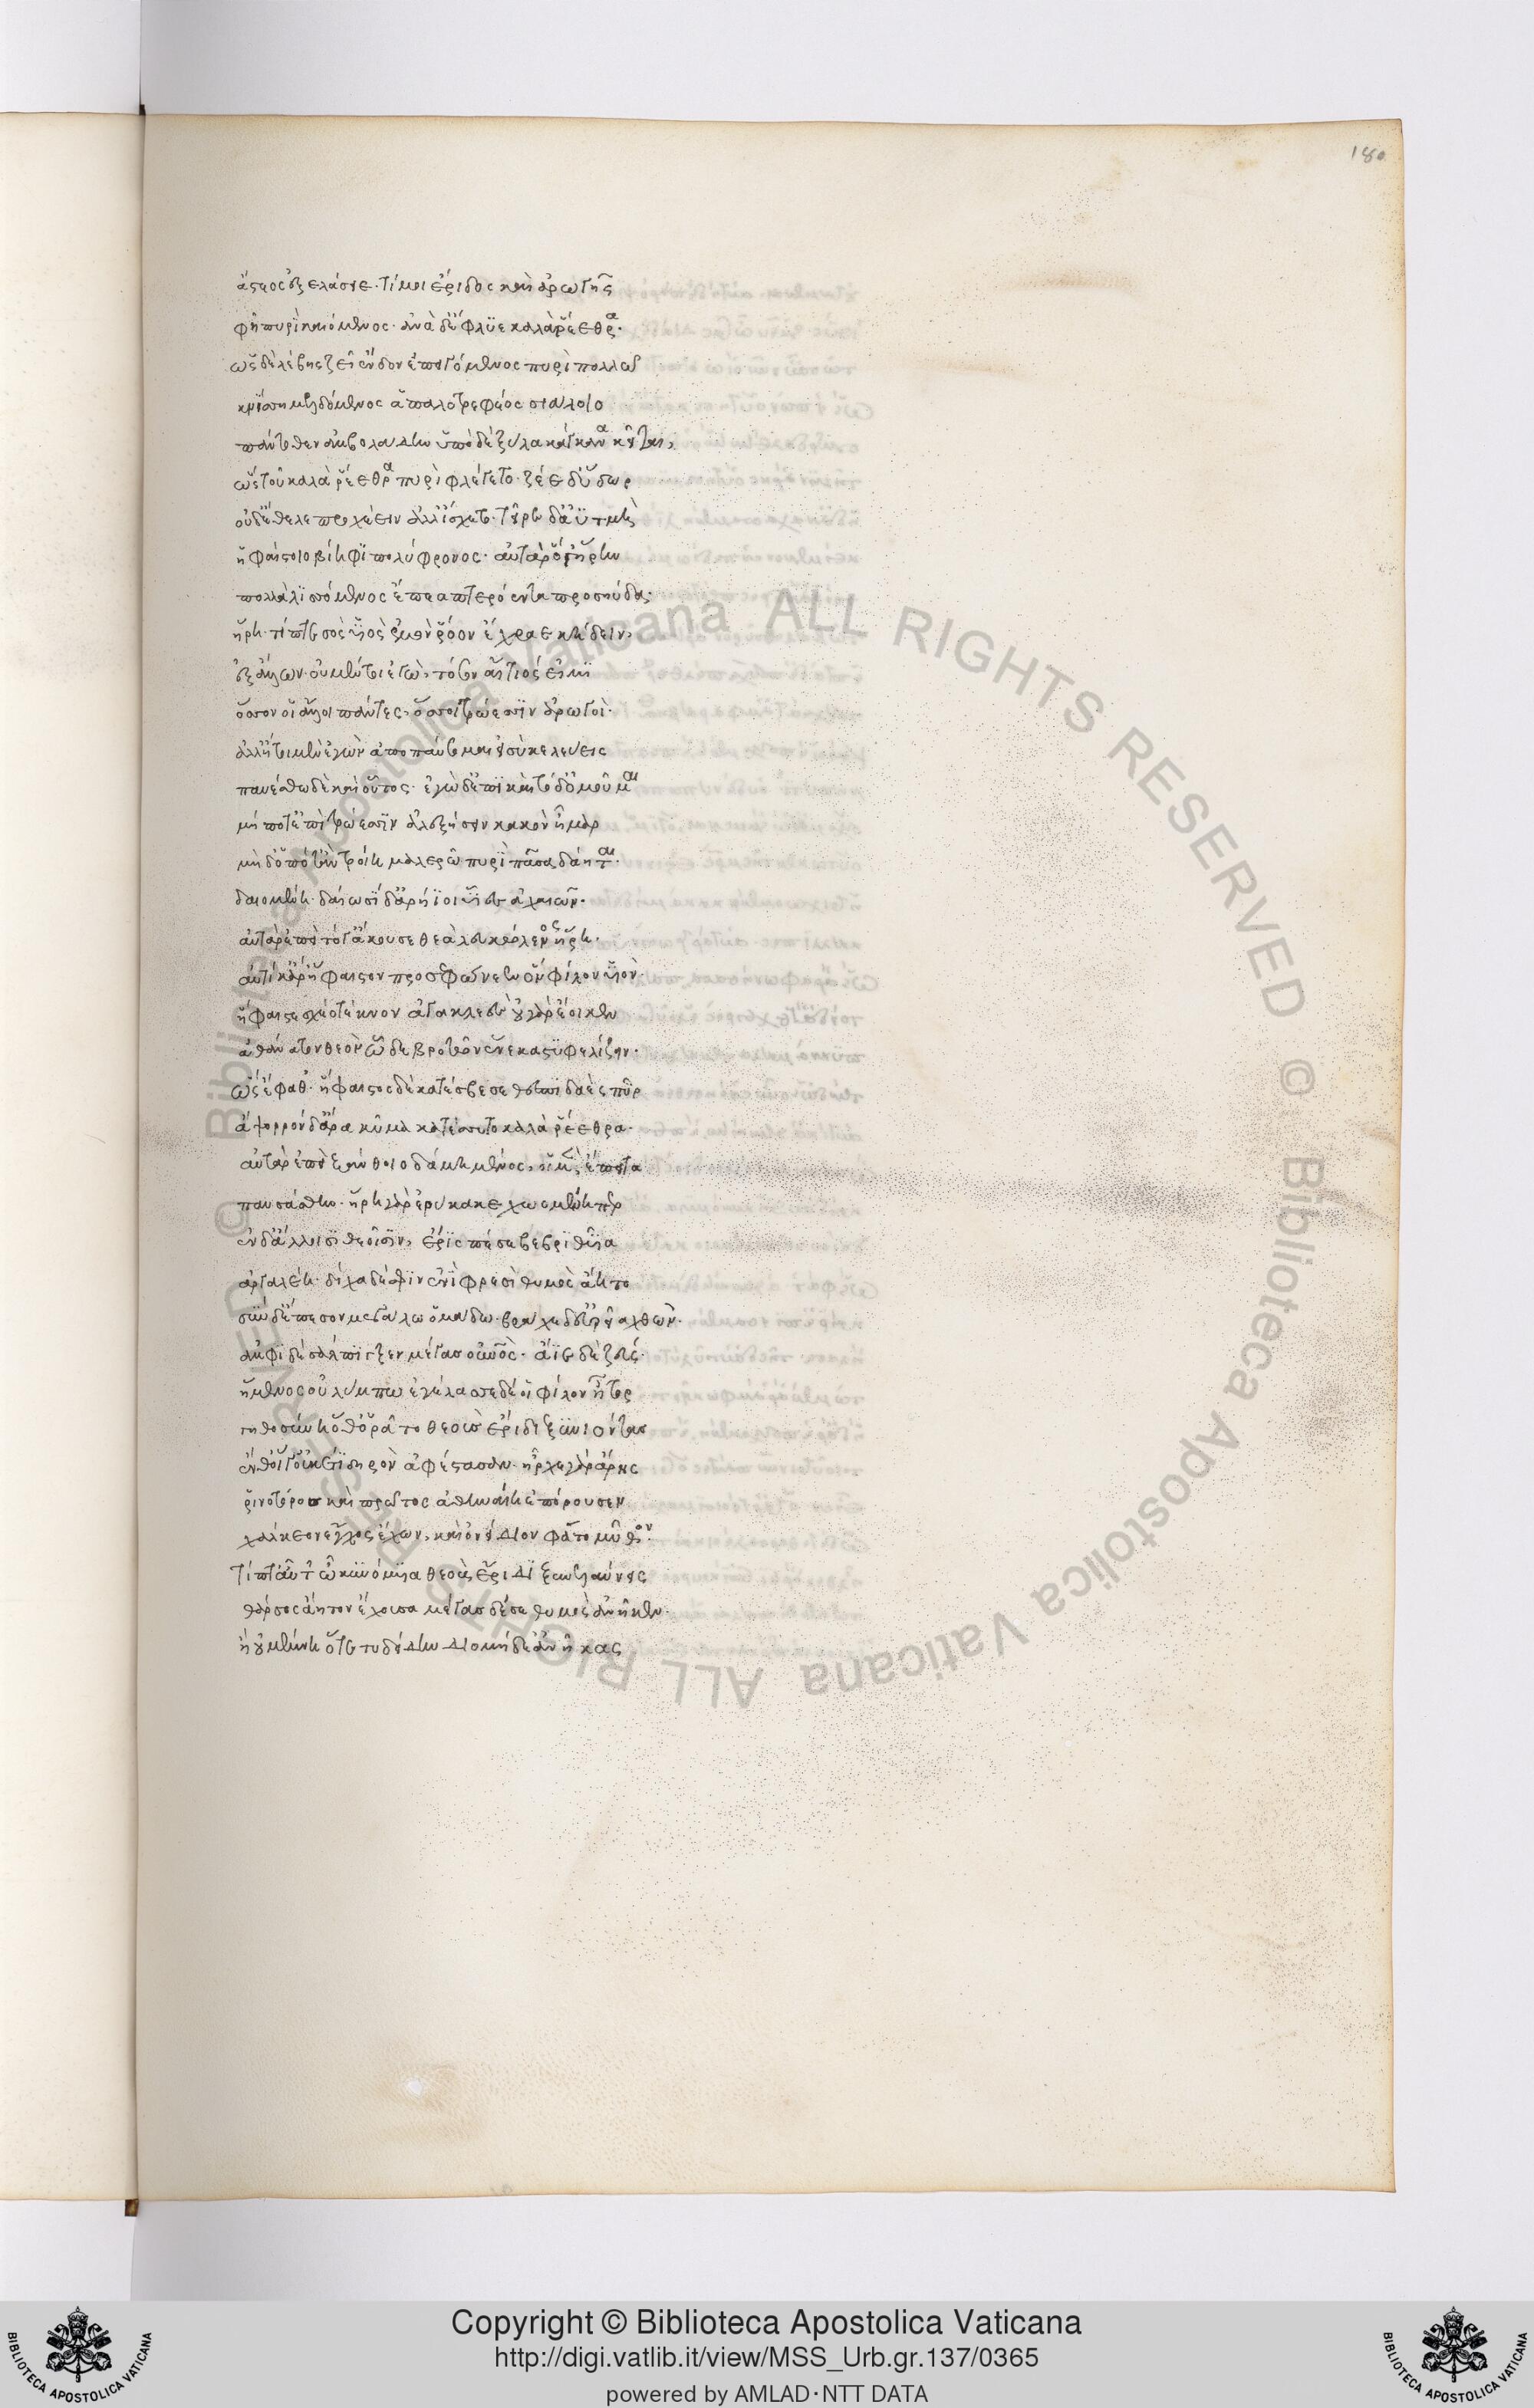 180
ἄστεος ἐξελάσειε· τί μοι ἔριδος καὶ ἀρωγῆς
φῆ πυρὶ καιόμενος· ἀνὰ δ' ἔφλυε καλὰ ῥέεθρα·
ὡς δὲ λέβης ζεῖ ἔνδον ἐπειγόμενος πυρὶ πολλῶ
κνίσση μελδόμενος ἁπαλοτρεφέος σιάλοιο
πάντοθεν ἀμβολάδην ὑπὸ δὲ ξύλα κάγκανα κεῖται,
ὣς τοῦ καλὰ ῥέεθρα πυρὶ φλέγετο· ζέε δ' ὕδωρ
οὐδ' ἔθελε προρέειν ἀλλ' ἴσχετο· τεῖρε δ' ἀϋτμὴ
ἡφαίστοιο βίηφι πολύφρονος· αὐτὰρ ὅγ' ἥρην
πολλὰ λισσόμενος ἔπεα πτερόεντα προσηύδα·
ἥρη· τίπτε σὸς υἱὸς ἐμὸν ῥόον ἔχραε κήδειν,
ἐξ ἄλλων· οὐ μέν τοι ἐγὼ, τόσον αἴτιός εἰμι
ὅσσον οἱ ἄλλοι πάντες, ὅσοι τρώεσσιν ἀρωγοὶ·
ἀλλ' ἤτοι μὲν ἐγὼν ἀποπαύσομαι εἰ σὺ κελεύεις
παυέσθω δὲ καὶ οὗτος· ἐγὼ δ' ἐπὶ καὶ τόδ' ὀμοῦμαι
μή ποτ' ἐπὶ τρώεσσιν ἀλεξήσειν κακὸν ἦμαρ
μὴ δ' ὁπότ' ἂν τροίη μαλερῶ πυρὶ πᾶσα δάηται·
δαιομένη· δαίωσι δ' ἀρήϊοι υἷες ἀχαιῶν·
αὐτὰρ ἐπεὶ τόγ' ἄκουσε θεὰ λευκώλενος ἥρη·
αὐτίκ' ἄρ' ἥφαιστον προσεφώνεεν ὃν φίλον υἱὸν·
ἥφαιστε σχέο τέκνον ἀγακλεὲς οὐ γὰρ ἔοικεν
ἀθάνατον θεὸν ὧδε βροτῶν ἕνεκα στυφελίζειν·
ὣς ἔφαθ'· ἥφαιστος δὲ κατέσβεσε θεσπιδαὲς πῦρ
ἄψορρον δ' ἄρα κῦμα κατέσσυτο καλὰ ῥέεθρα·
αὐτὰρ ἐπεὶ ξάνθοιο δάμη μένος, οἱ μὲν ἔπειτα
παυσάσθην· ἥρη γὰρ ἐρύκακε χωομένη περ
ἐν δ' ἄλλοισι θεοῖσιν, ἔρις πέσε βεβριθυῖα
ἀργαλέη· δίχα δέ σφιν ἐνὶ φρεσὶ θυμὸς ἄητο
σὺν δ' ἔπεσον μεγάλω ὀμάδω· βράχε δ' εὐρεῖα χθών·
ἀμφὶ δὲ σάλπιγξεν μέγας οὐρανὸς· ἄϊε δὲ ζεύς·
ἥμενος οὐλύμπω ἐγέλασσε δέ οἱ φίλον ἦτορ
γηθοσύνη ὅθ' ὁρᾶτο θεοὺς ἔριδι ξυνιόντας
ἔνθ' οἵ γ' οὐκέτι δηρὸν ἀφέστασαν· ἦρχε γὰρ ἄρης
ῥινοτόρος καὶ πρῶτος ἀθηναίη ἐπόρουσεν
χάλκεον ἔγχος ἔχων, καὶ ὀνείδιον φάτο μῦθον·
τίπτ' αὖτ' ὦ κυνόμυια θεοὺς ἔριδι ξυνελαύνεις
θάρσος ἄητον ἔχουσα μέγας δέ σε θυμὸς ἀνῆκεν·
ἦ οὐ μέμνη ὅτε τυδείδην διομήδε' ἀνῆκας
Copyright © Biblioteca Apostolica Vaticana
http://digi.vatlib.it/view/MSS_Urb.gr.137/0365
powered by AMLAD·NTT DATA
BIBLIOTECA APOSTOLICA VATICANA
BIBLIOTECA APOSTOLICA VATICANA
© Biblioteca Apostolica Vaticana ALL RIGHTS RESERVED
© Biblioteca Apostolica Vaticana ALL RIGHTS RESERVED